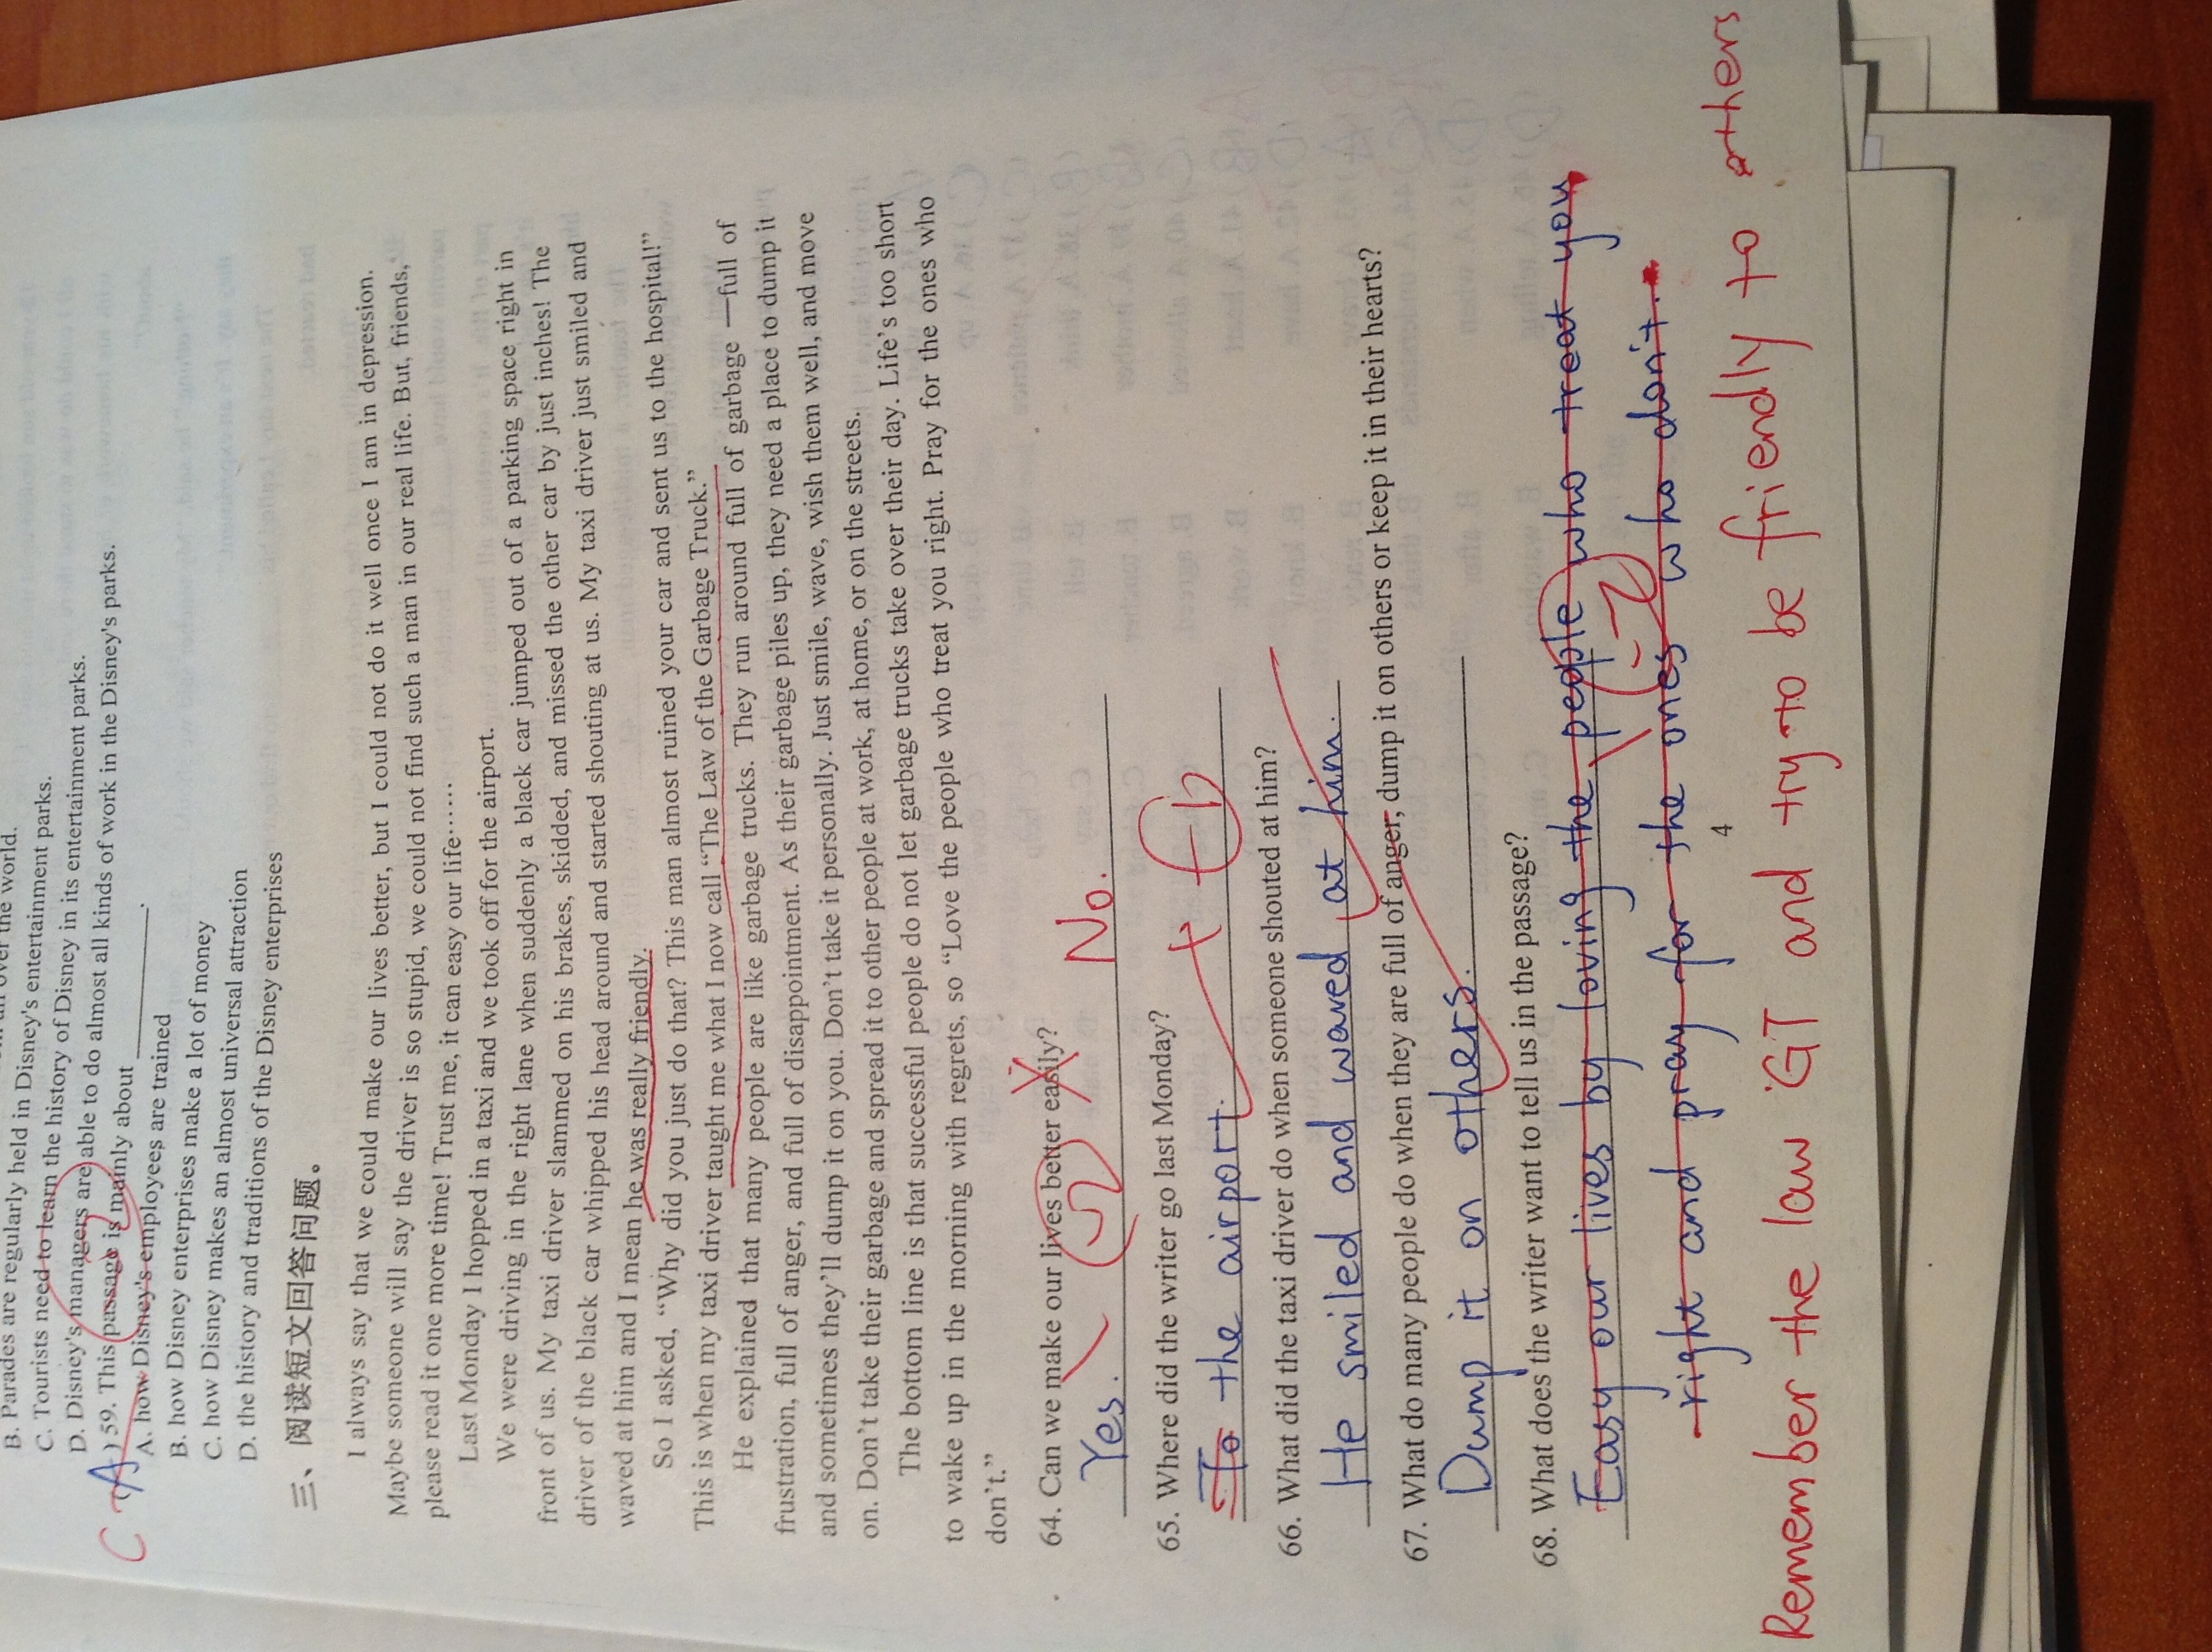 over the world.
B. Parades are regularly held in Disney's entertainment parks.
C. Tourists need to learn the history of Disney in its entertainment parks.
D. Disney's managers are able to do almost all kinds of work in the Disney's parks.
C (A) 59. This passage is mainly about ___.
A. how Disney's employees are trained
B. how Disney enterprises make a lot of money
C. how Disney makes an almost universal attraction
D. the history and traditions of the Disney enterprises
三、阅读短文回答问题。
I always say that we could make our lives better, but I could not do it well once I am in depression.
Maybe someone will say the driver is so stupid, we could not find such a man in our real life. But, friends,
please read it one more time! Trust me, it can easy our life……
Last Monday I hopped in a taxi and we took off for the airport.
We were driving in the right lane when suddenly a black car jumped out of a parking space right in
front of us. My taxi driver slammed on his brakes, skidded, and missed the other car by just inches! The
driver of the black car whipped his head around and started shouting at us. My taxi driver just smiled and
waved at him and I mean he was really friendly.
So I asked, “Why did you just do that? This man almost ruined your car and sent us to the hospital!”
This is when my taxi driver taught me what I now call “The Law of the Garbage Truck.”
He explained that many people are like garbage trucks. They run around full of garbage —full of
frustration, full of anger, and full of disappointment. As their garbage piles up, they need a place to dump it
and sometimes they’ll dump it on you. Don’t take it personally. Just smile, wave, wish them well, and move
on. Don’t take their garbage and spread it to other people at work, at home, or on the streets.
The bottom line is that successful people do not let garbage trucks take over their day. Life’s too short
to wake up in the morning with regrets, so “Love the people who treat you right. Pray for the ones who
don’t.”
64. Can we make our lives better easily?
Yes. No.
65. Where did the writer go last Monday?
To the airport.
66. What did the taxi driver do when someone shouted at him?
He smiled and waved at him.
67. What do many people do when they are full of anger, dump it on others or keep it in their hearts?
Dump it on others.
68. What does the writer want to tell us in the passage?
Easy our lives by loving the people who treat you
right and pray for the ones who don't.
4
Remember the law GT and try to be friendly to others